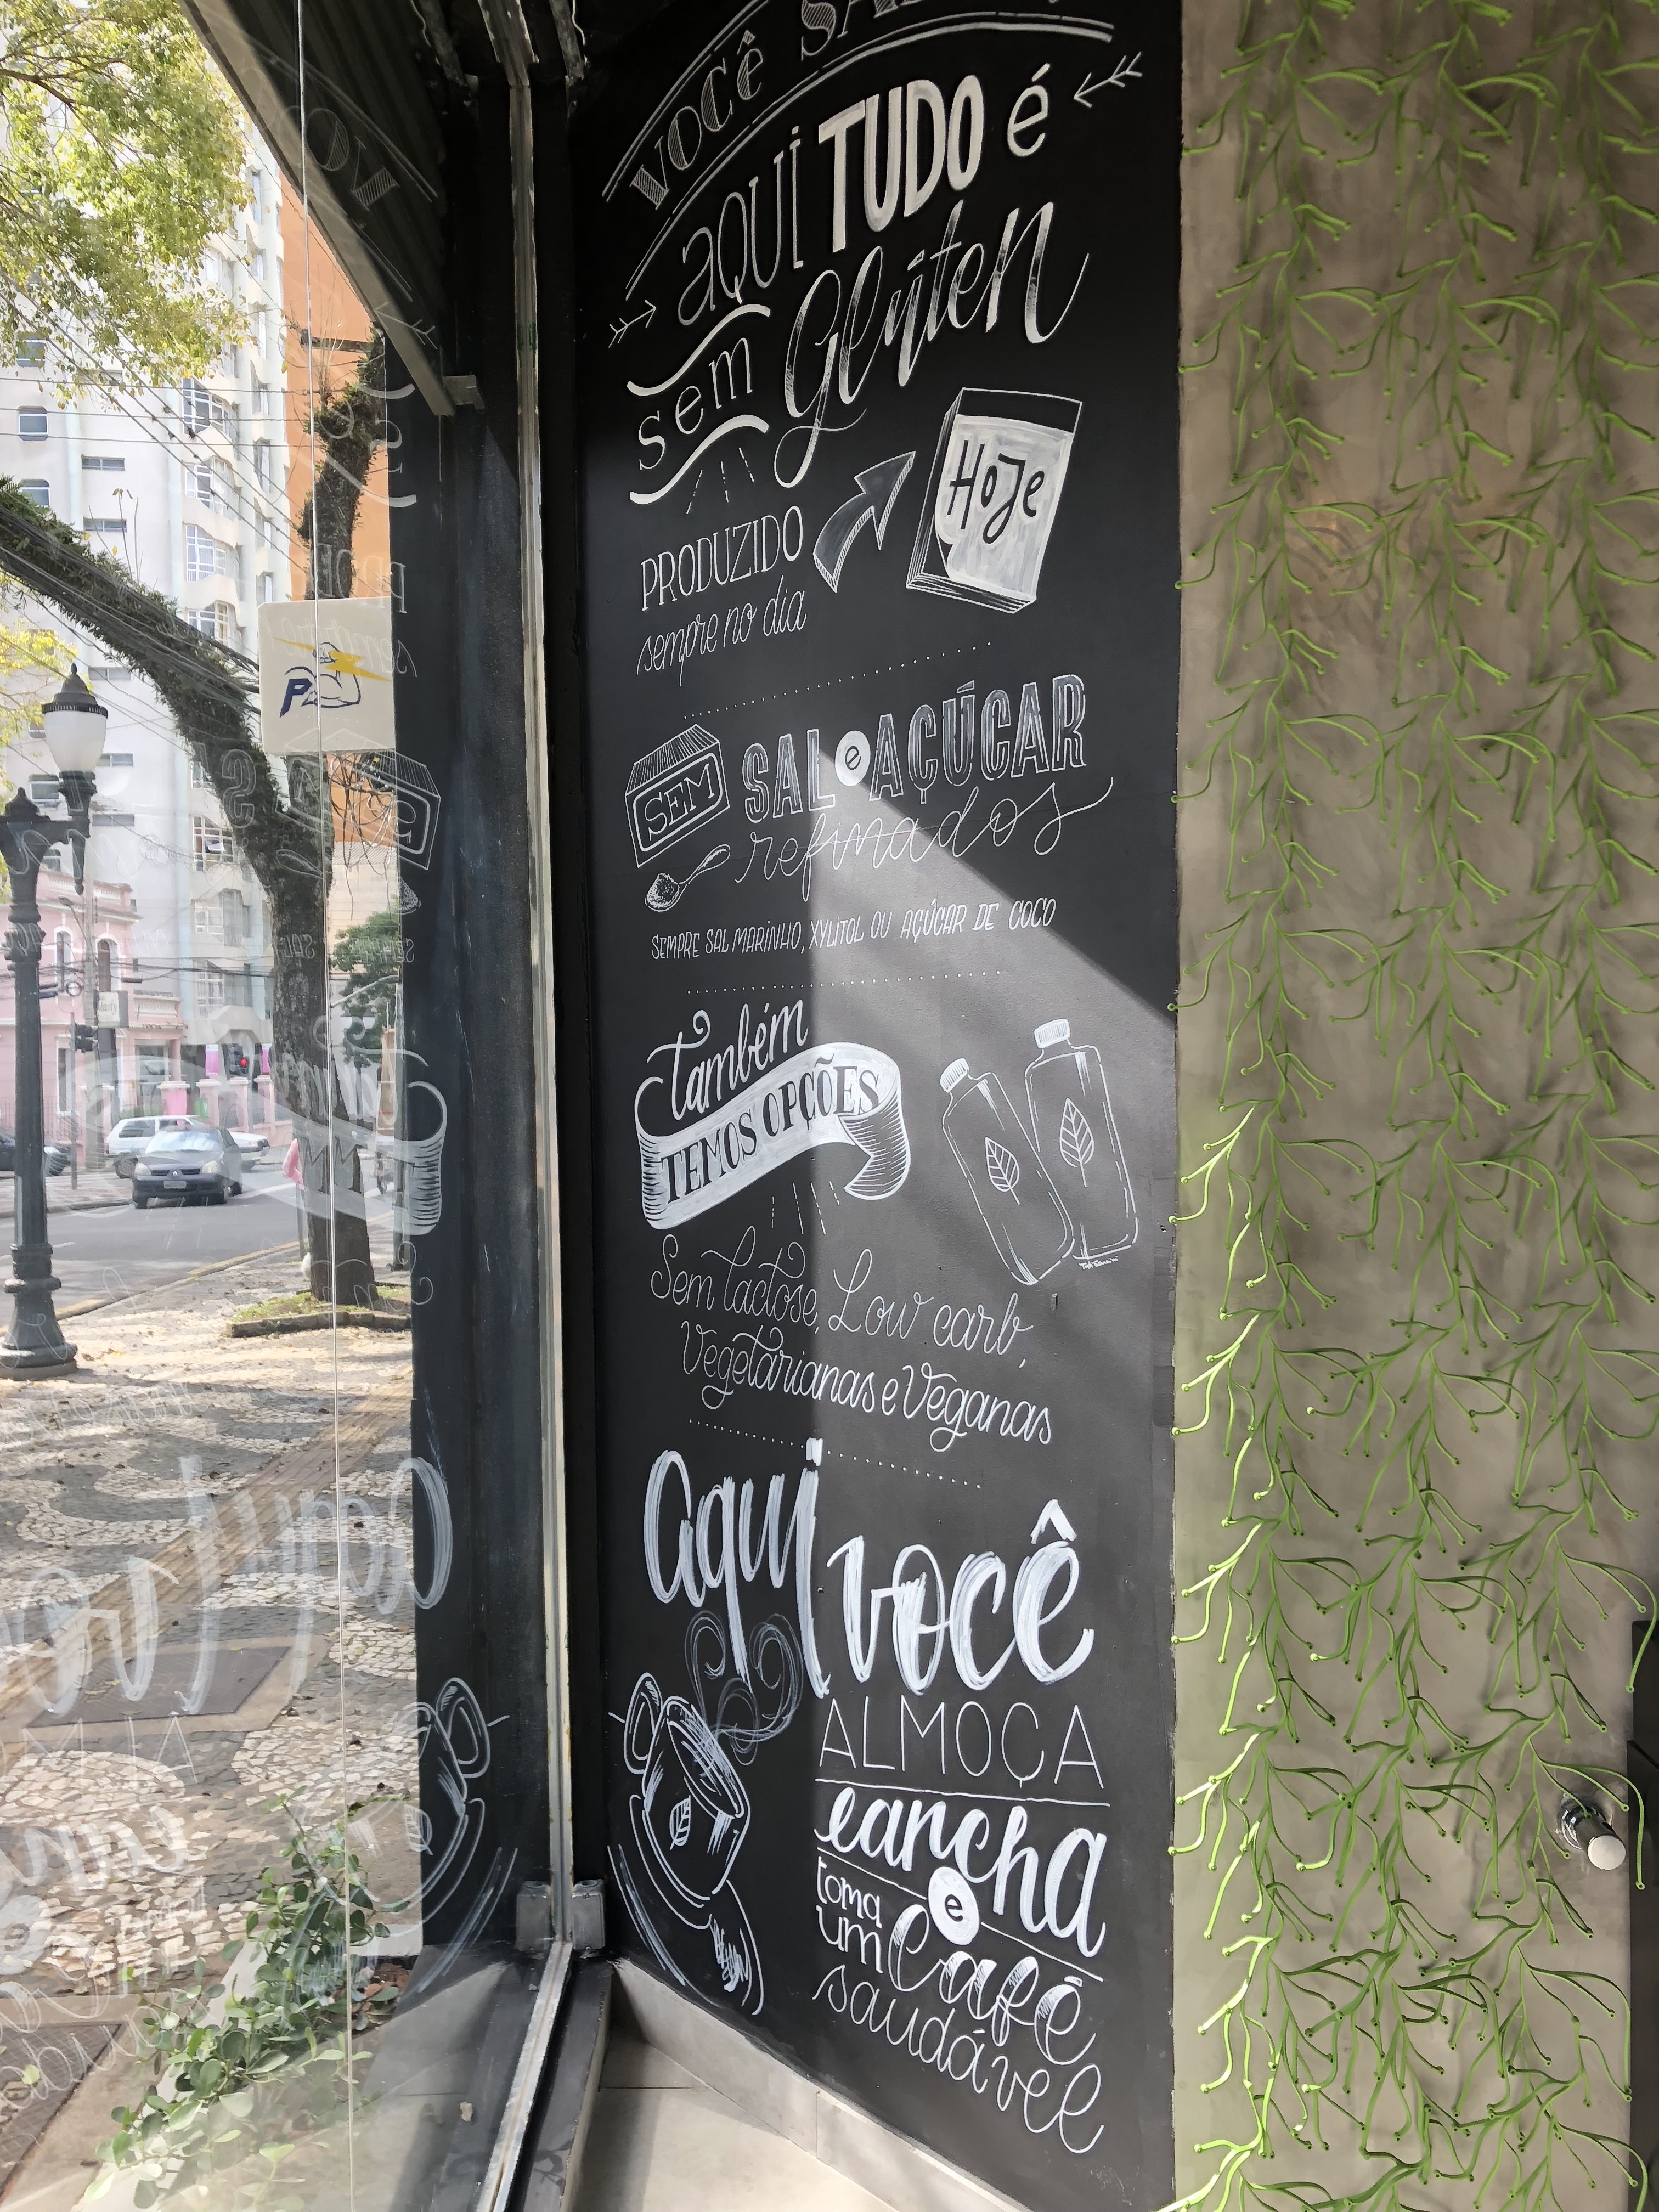 VOCÊ
AQUI TUDO é
sem Glúten
Hoje
PRODUZIDO
sempre no dia
SEM
SAL e AÇÚCAR
refinados
SEMPRE SAL MARINHO, XYLITOL OU AÇÚCAR DE COCO
também
TEMOS OPÇÕES
Sem lactose, Low carb,
Vegetarianas e Veganas
aqui você
ALMOÇA
lancha
e
toma
um Café
saudável